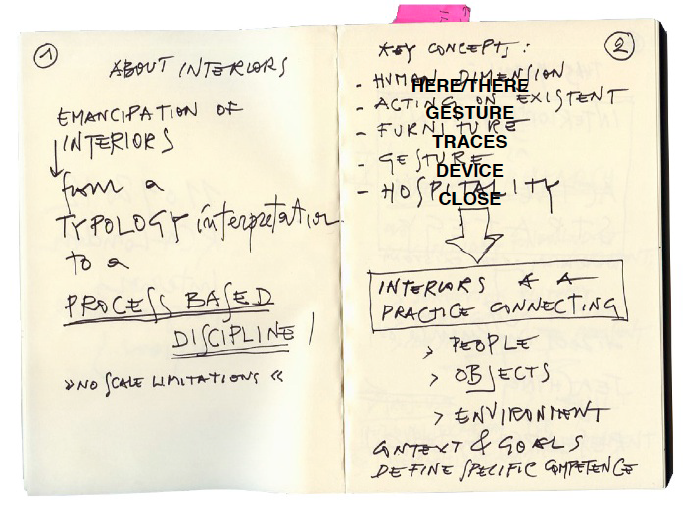 1
ABOUT INTERIORS
EMANCIPATION OF
INTERIORS
from a
TYPOLOGY interpretation
to a
PROCESS BASED
DISCIPLINE!
»NO SCALE LIMITATIONS«
2
KEY CONCEPTS:
- HUMAN DIMENSION
HERE/THERE
- ACTING ON EXISTENT
GESTURE
- FURNITURE
TRACES
- GESTURE
DEVICE
- HOSPITALITY
CLOSE
INTERIORS A A
PRACTICE CONNECTING
> PEOPLE
> OBJECTS
> ENVIRONMENT
CONTEXT & GOALS
DEFINE SPECIFIC COMPETENCE